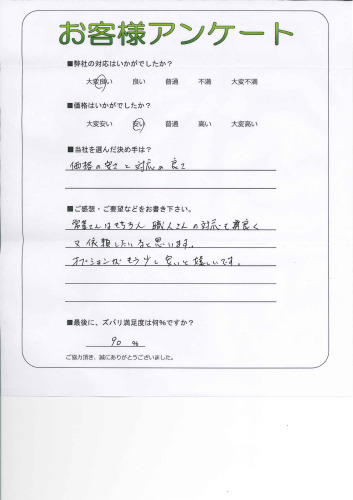 お客様アンケート
■弊社の対応はいかがでしたか？
大変良い 良い 普通 不満 大変不満
■価格はいかがでしたか？
大変安い 安い 普通 高い 大変高い
■当社を選んだ決め手は？
価格の安さと対応の良さ
■ご感想・ご要望などをお書き下さい。
営業さんはもちろん 職人さんの対応も 良く
又依頼したいなと思います。
オプションがもう少し安いと嬉しいです。
■最後に、ズバリ満足度は何％ですか？
90 %
ご協力頂き、誠にありがとうございました。